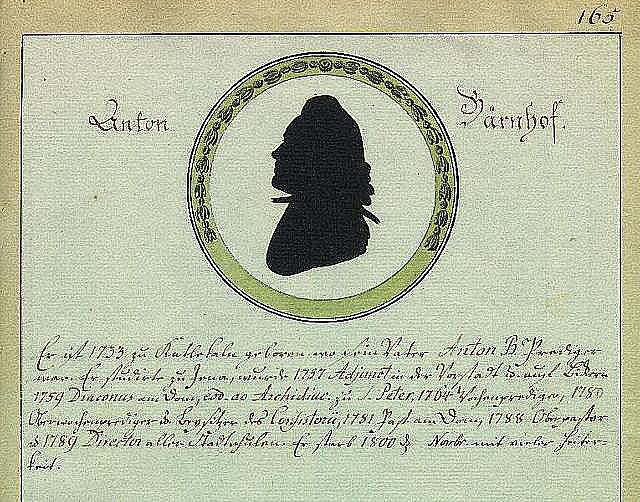 165
Anton Bärnhof.
Er ist 1733 zu Katlekaln geboren, wo sein Vater Anton B. Prediger
war. Er studirte zu Jena, wurde 1757 Adjunct in der Vorstadt u. auf
1759 Diaconus am Dom, eod. ao Archidiac. zu S. Peter, 1764 Wochenprediger, 1780
Oberwochenprediger u. Beysitzer des Consistorii, 1781 Past. am Dom, 1788 Oberpastor
u. 1789 Director aller Stadtschulen. Er starb 1800 d. mit vieler Heiter-
keit.